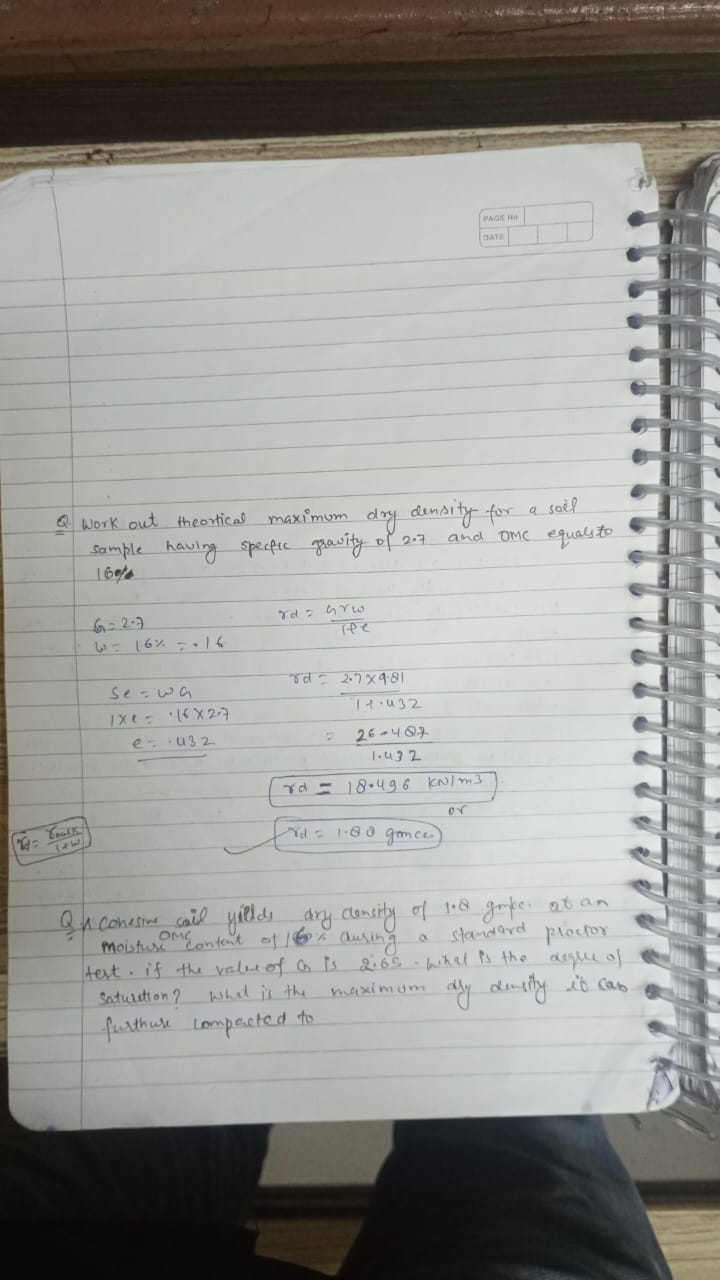 PAGE No
DATE
Q. Work out theortical maximum dry density for a soil
sample having specfic gravity of 2.7 and OMC equals to
16%
G = 2.7
W = 16% = .16
γd = Gγw
1+e
Se = wG
1×e = .16×2.7
e = .432
γd = 2.7×9.81
1+.432
= 26.487
1.432
γd = 18.496 KN/m3
or
γd = 1.88 gm/cc
γd = γbulk
1+w
Q A cohesive soil yields dry density of 1.8 gm/cc. at an
OMC
Moisture content of 16% during a standard proctor
test. if the value of G is 2.65. What is the degree of
Saturation? What is the maximum dry density it can
furthure compacted to